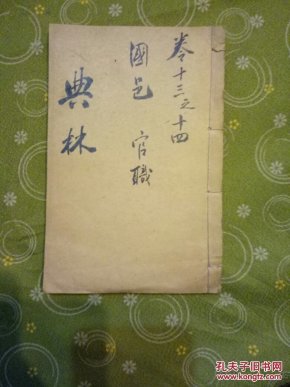 卷十三之十四
國邑 官職
典林
孔夫子旧书网